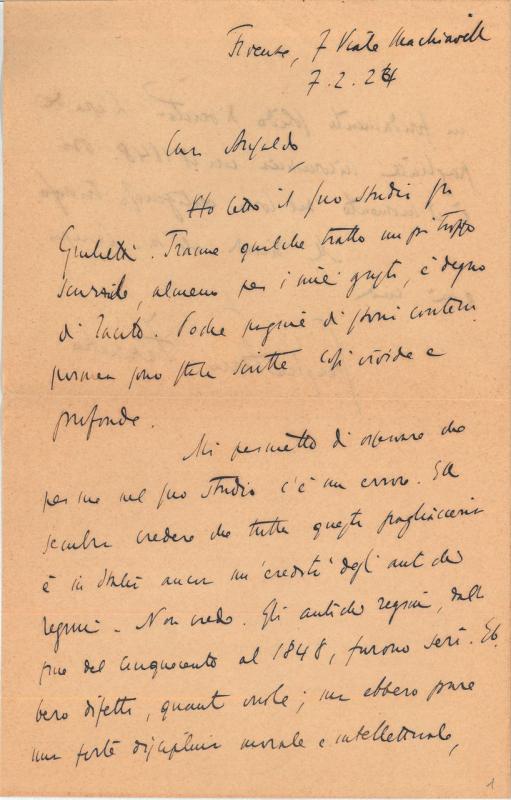 Firenze, 7 Viale Machiavelli
7.2.24
Caro Ansaldo,
Ho letto il suo studio su
Giolitti. Tranne qualche tratto un po' troppo
scurrile, almeno per i miei gusti, è degno
di Tacito. Poche pagine di storia contem
poranea sono state scritte così vivide e
profonde.
Mi permetto di osservare che
per me nel suo studio c'è un errore. Ella
sembra credere che tutta questa pagliacceria
è in Italia ancora un'eredità degli antichi
regimi. Non credo. Gli antichi regimi, dalla
fine del Cinquecento al 1848, furono seri. Eb
bero difetti, quanti vuole; ma ebbero pure
una forte disciplina morale e intellettuale,
1